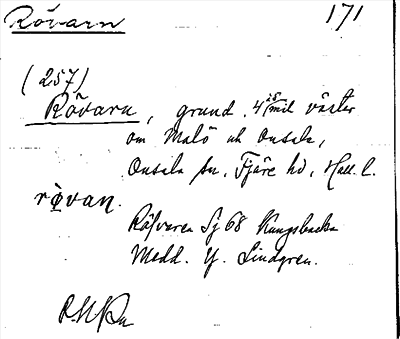 Rövarn
171
(257)
Rövarn, grund, 4 mil väster
om Malö och Onsala,
Onsala sn, Fjäre hd, Hall. l.
rövan.
Räfveren Sj 68 Kungsbacka
Medd. Y. Lindgren.